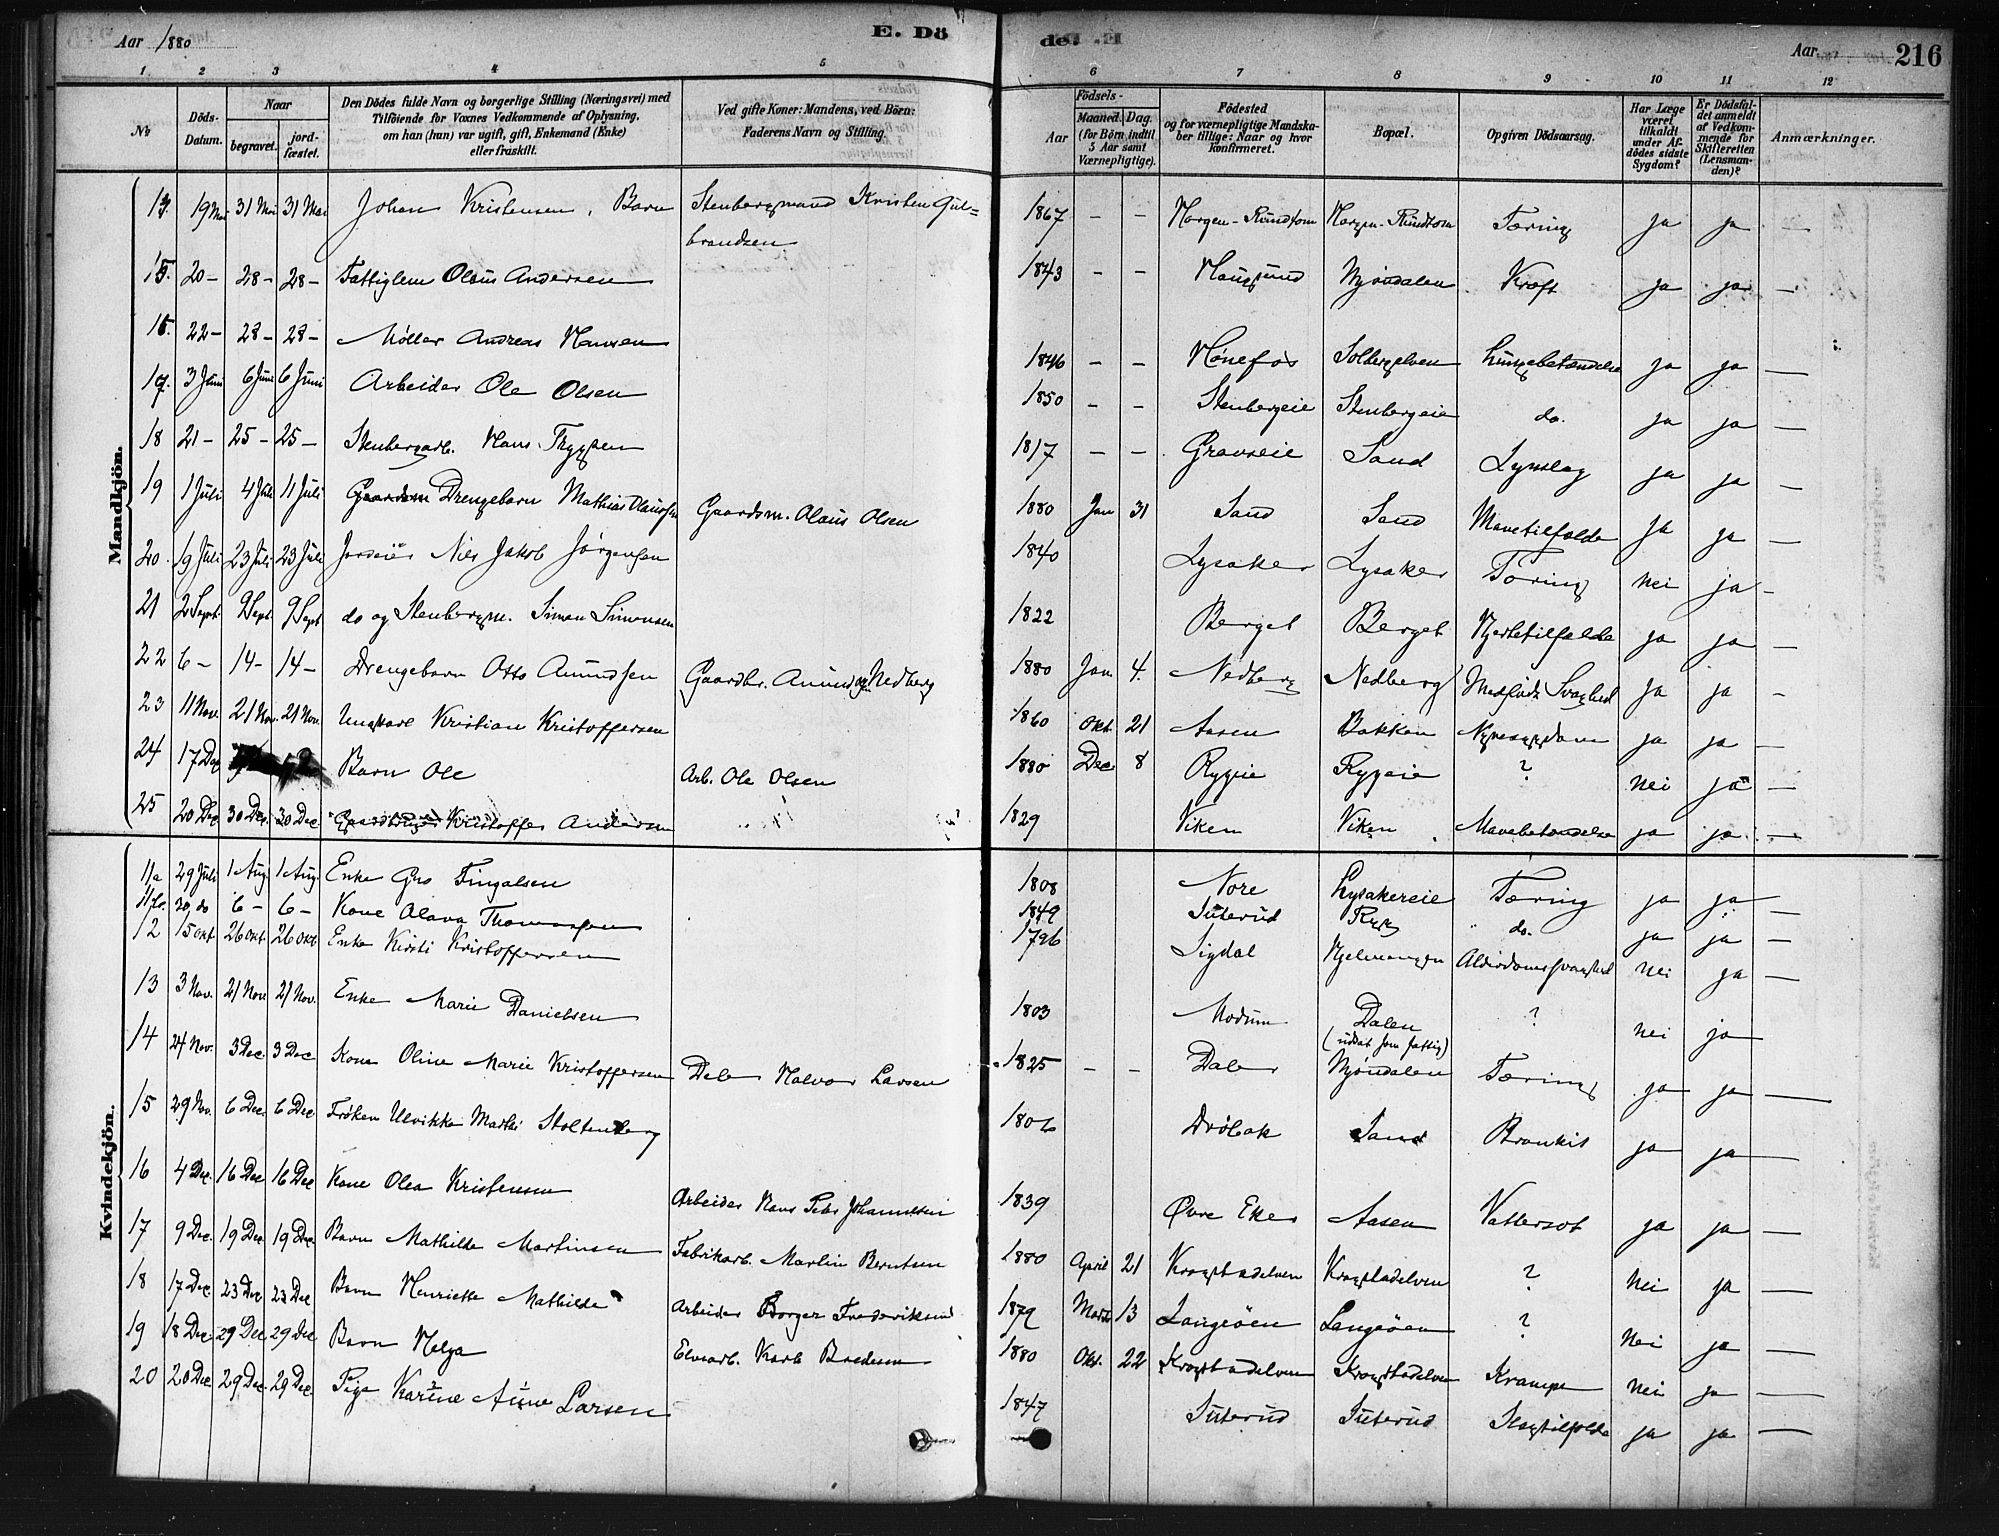 Aar 1880 E. Dö de. Aar 216
1. 2 3 4 5 6 7 8 9 10 11 12
No Döds-Datum. Naar begravet. jord-fæstet. Den Dödes fulde Navn og borgerlige Stilling (Næringsvei) med Tilföiende for Voxnes Vedkommende af Oplysning, om han (hun) var ugift, gift, Enkemand (Enke) eller fraskilt. Ved gifte Koner: Mandens, ved Börn: Faderens Navn og Stilling. Födsels- Aar Maaned. Dag. (for Börn indtil 5 Aar samt Værnepligtige). Födested og for værnepligtige Mandskaber tillige: Naar og hvor konfirmeret. Bopæl. Opgiven Dödsaarsag. Har Læge været tilkaldt under Afdödes sidste Sygdom? Er Dödsfaldet anmeldt af Vedkommende for Skifteretten (Lensmanden)? Anmærkninger.
Mandkjön.
19 Mai 31 Mai 31 Mai Johan Kristensen, Barn Stenbergmand Kristen Gul= 1867 – – Horgen-Rundtom Horgen-Rundtom Tæring ja ja —
brandsen
15. 20 – 28 – 28 – Fattiglem Olaus Andersen 1843 – – Haugsund Mjöndalen Kræft ja ja —
16. 22 – 28 – 28 – Møller Andreas Hansen 1846 – – Hønefos Solbergelven Lungebetændelse ja ja —
17. 3 Juni 6 Juni 6 Juni Arbeider Ole Olsen 1850 – – Stenbergeie Stenbergeie do. ja ja —
18 21 – 25 – 25 – Stenbergarb. Hans Trygsen 1817 – – Gravseie Sand Lynslag ja ja —
19 1 Juli 4 Juli 11 Juli Gaardsm Drengebarn Mathias Olaussen Gaardsm. Olaus Olsen 1880 Jan 31 Sand Sand Mavetilfælde ja ja —
20 19 Juli 23 Juli 23 Juli Jordeier Nils Jakob Jörgensen 1840 Lysaker Lysaker Tæring nei ja –
21 2 Sept 9 Sept 9 Sept do og Stenbergm. Simen Simensen 1822 Berget Berget Hjertetilfælde ja ja –
22 6 – 14 – 14 – Drengebarn Otto Amundsen Gaardbr. Amund Nedberg 1880 Jan 4. Nedberg Nedberg Medfödt Svaghed ja ja –
23 11 Nov. 21 Nov. 21 Nov. Ungkarl Kristian Kristoffersen 1860 Okt 21 Aasen Bakken Nyresygdom ja ja —
24 17 Dec Barn Ole Arb. Ole Olsen 1880 Dec 8 Rygeie Rygeie ? nei ja —
25 20 Dec 30 Dec. 30 Dec Gaardbruger Kristoffer Andersen 1829 Viken Viken Mavebetændelse ja ja —
Kvindekjön.
11a 29 Juli 1 Aug 1 Aug. Enke Gro Fingalsen 1808 Nore Lysakereie Tæring ja ja —
11b. 30 do 6 – 6 – Kone Olava Thomassen 1849 Suterud Ryg do. ja ja —
12 15 Okt 26 Okt 26 Okt Enke Kirsti Kristoffersen 1796 Sigdal Alderdomssvaghed nei ja —
13 3 Nov. 21 Nov. 21 Nov. Enke Marie Danielsen 1803 Modum Dalen ? nei ja —
(udsat som fattig)
14 24 Nov. 3 Dec 3 Dec Kone Oline Marie Kristoffersen Halvor Larsen 1825 – – Mjöndalen Tæring ja ja —
15 29 Nov. 6 Dec. 6 Dec Frøken Ulrikke Marthe Stoltenberg 1806 Dröbak Sand Bronkit ja ja —
16 4 Dec. 16 Dec 16 Dec Kone Olea Kristensen Arbeider Hans Peter Johannessen 1839 Øvre Eker Aasen Vattersot ja ja —
17 9 Dec. 19 Dec 19 Dec Barn Mathilde Martinsen Fabrikarb. Martin Berntsen 1880 April 21 Krogstadelven Krogstadelven ? nei ja —
18 17 Dec 23 Dec 23 Dec Barn Henriette Mathilde Arbeider Borger Frederiksen 1879 Marts 13 Langeöen Langeöen ? nei ja —
19 18 Dec 29 Dec 29 Dec Barn Helga Elvearb. Karl Bredesen 1880 Okt. 22 Krogstadelven Krogstadelven Krampe nei ja —
20 20 Dec 29 Dec. 29 Dec Pige Karine Anne Larsen 1847 Suterud Suterud Slagtilfælde ja ja —